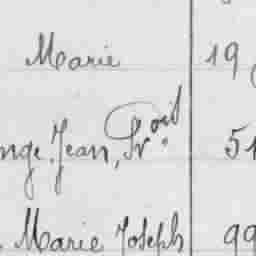 Marie 19
nge Jean, Fr.oid 51
Marie Joseph 99